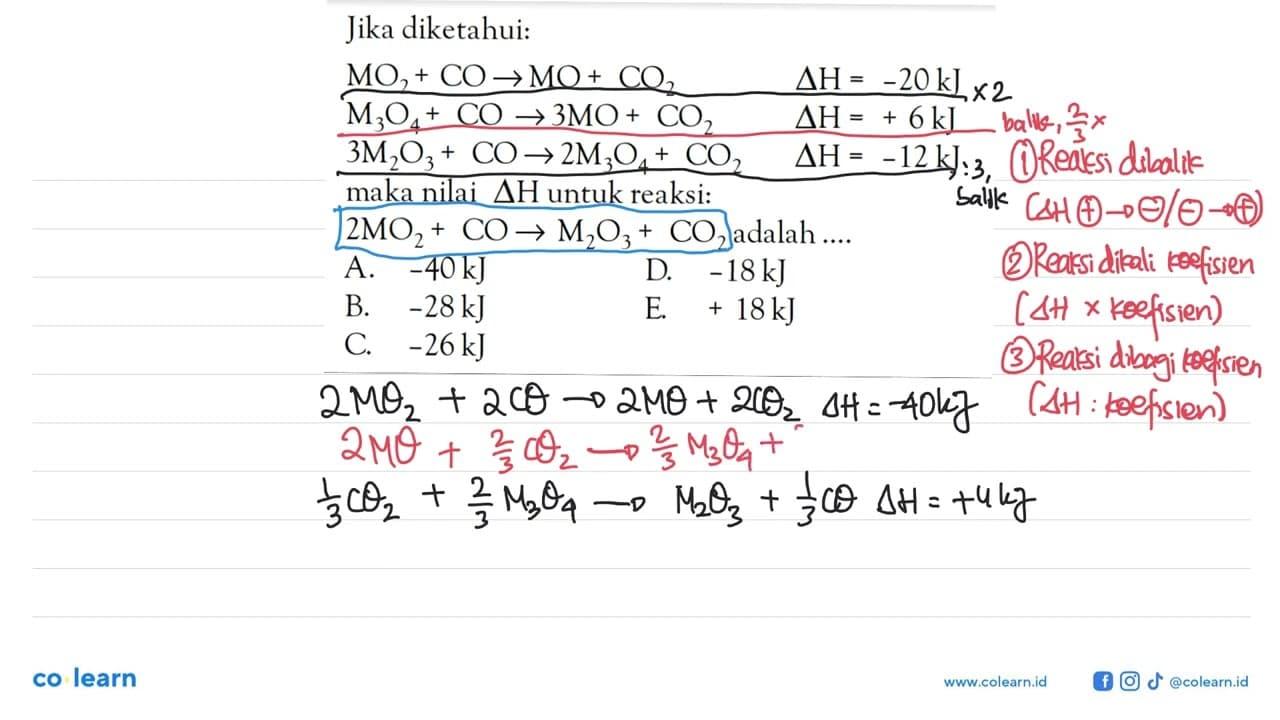 Jika diketahui:
MO₂ + CO → MO + CO₂ ΔH = -20 kJ ×2
M₃O₄ + CO → 3MO + CO₂ ΔH = + 6 kJ balik, 2/3 ×
3M₂O₃ + CO → 2M₃O₄ + CO₂ ΔH = -12 kJ :3, balik
maka nilai ΔH untuk reaksi:
2MO₂ + CO → M₂O₃ + CO₂ adalah ....
A. -40 kJ D. -18 kJ
B. -28 kJ E. + 18 kJ
C. -26 kJ
① Reaksi dibalik
(ΔH ⊕ → ⊖/⊖ → ⊕)
② Reaksi dikali koefisien
(ΔH × koefisien)
③ Reaksi dibagi koefisien
(ΔH : koefisien)
2MO₂ + 2CO → 2MO + 2CO₂ ΔH = -40kJ
2MO + 2/3 CO₂ → 2/3 M₃O₄ +
1/3 CO₂ + 2/3 M₃O₄ → M₂O₃ + 1/3 CO ΔH = +4 kJ
co learn www.colearn.id @colearn.id